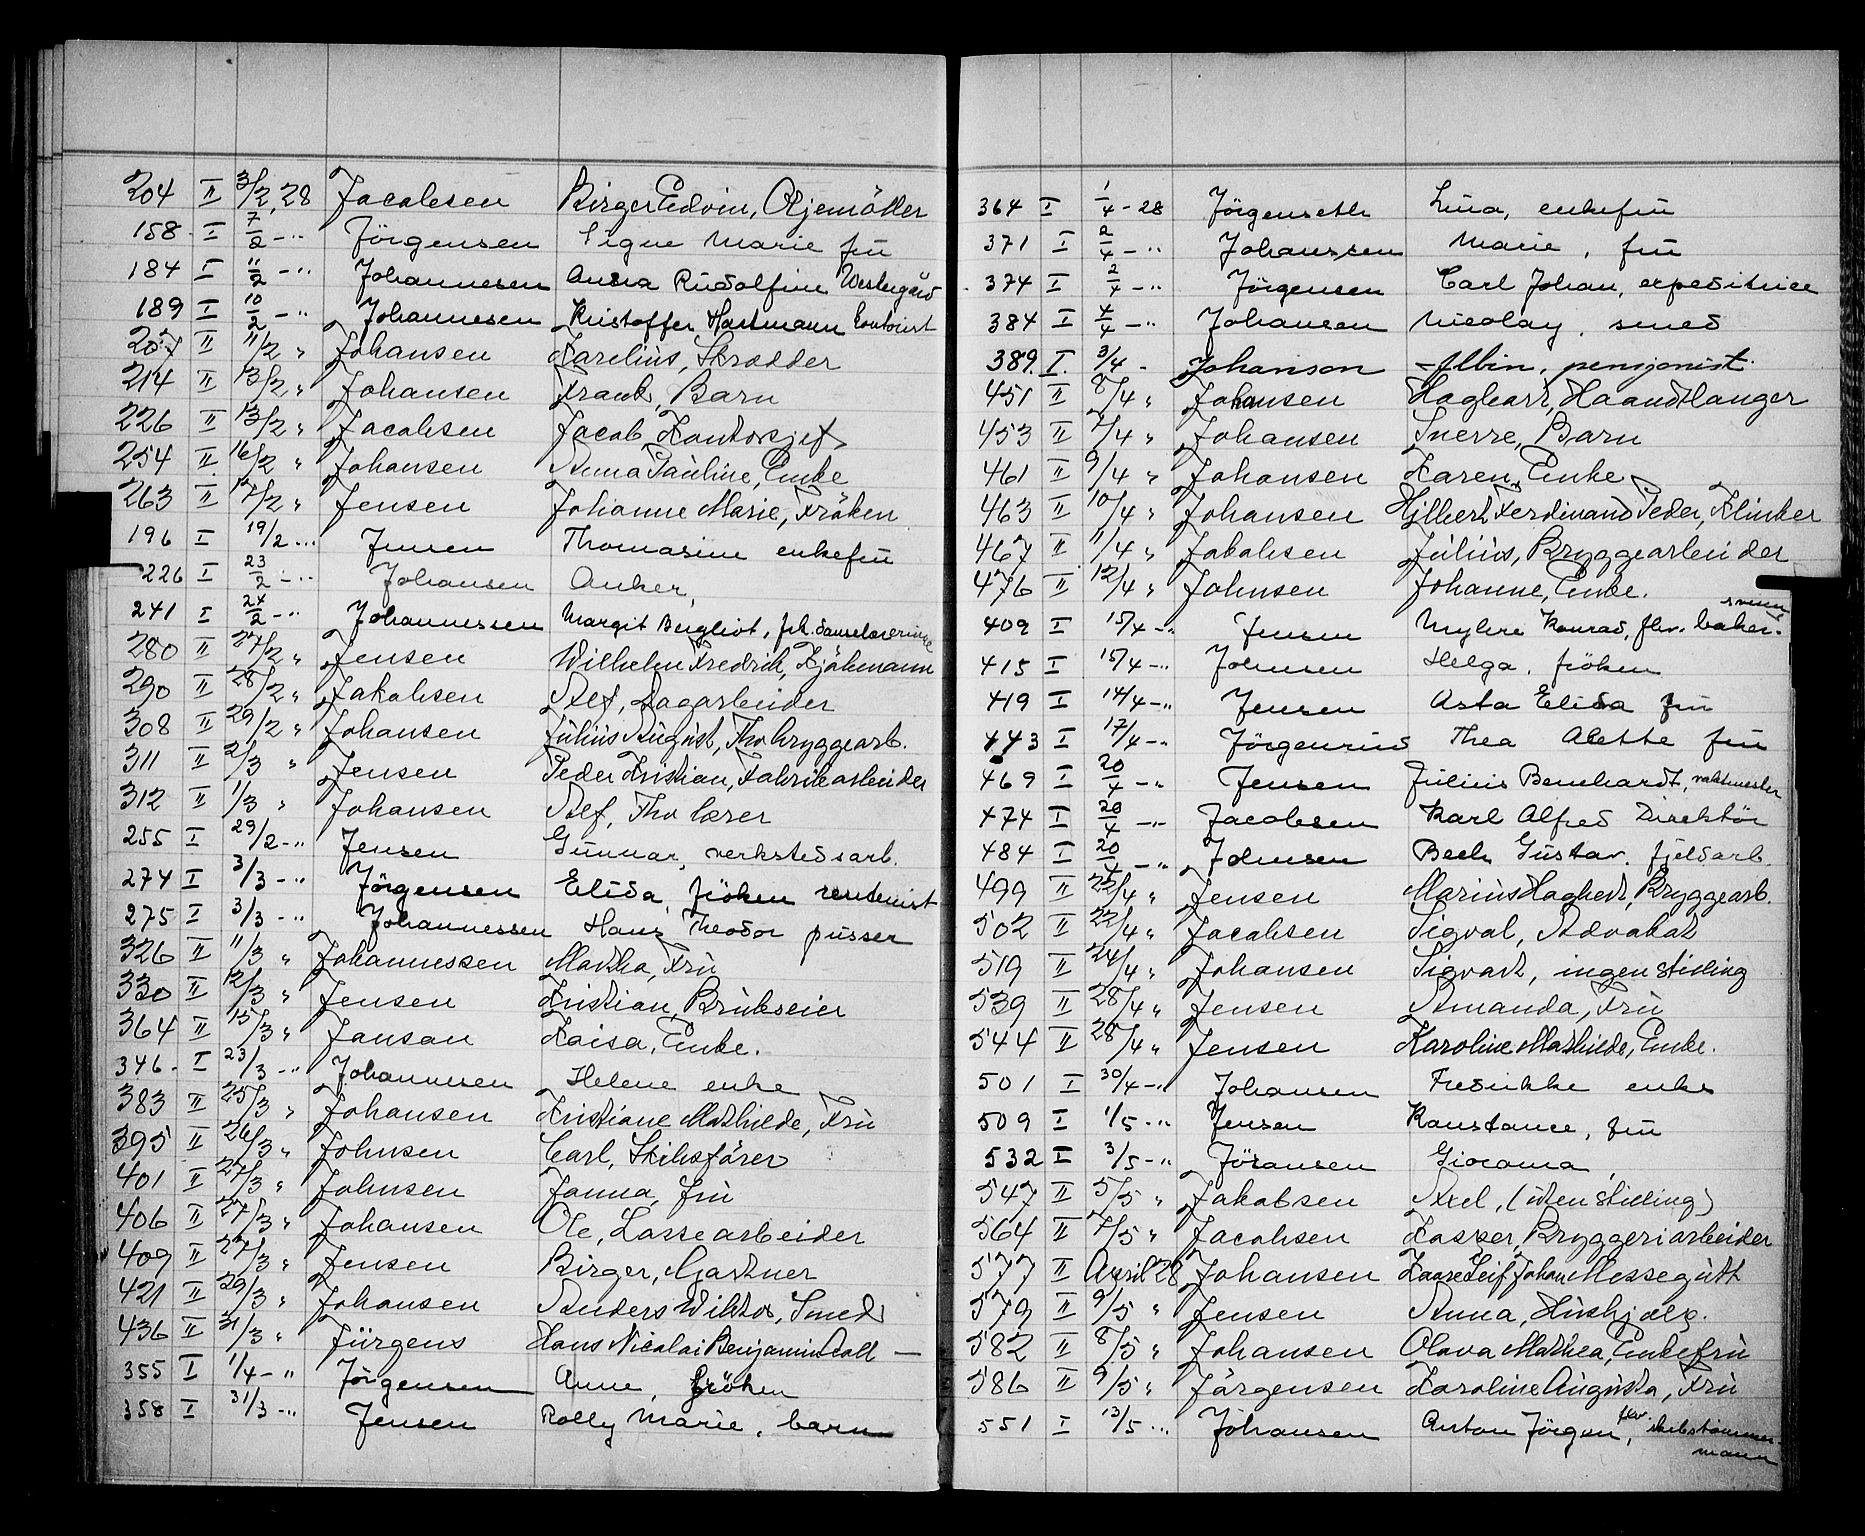 204 II 3/2,28 Jacobsen Birger Edvin, Oljemöller
158 I 7/2 -" Jörgensen Signe Marie fru
184 I 11/2 -" Johannesen Anna Rudolfine Westergård
189 I 10/2 -" Johannesen Kristoffer Hartmann kontorist
207 II 11/2 " Johansen Karelius, Skrædder
214 II 13/2 " Johansen Frank, Barn
226 II 13/2 " Jacobsen Jacob, Kontorsjef
254 II 16/2 " Johansen Anna Pauline, Enke
263 II 17/2 " Jensen Johanne Marie, Fröken
196 I 19/2 -" Jensen Thomasine enkefru
226 I 23/2 -" Johansen Anker,
241 I 24/2 -" Johannessen Margit Bergliot, frk. danselærerinne
280 II 27/2 " Jensen Wilhelm Fredrik, Kjöbmann
290 II 28/2 " Jakobsen Alf, Dagarbeider
308 II 29/2 " Johansen Julius August, Fhv bryggearb.
311 II 2/3 " Jensen Peder Kristian, Fabrikarbeider
312 II 1/3 " Johansen Alf, Fhv lærer
255 I 29/2 -" Jensen Gunnar, verkstedsarb.
274 I 3/3 -" Jörgensen Elida, fröken rentenist
275 I 3/3 -" Johannessen Hans Theodor pusser
326 II 11/3 " Johannessen Martha, Fru
330 II 12/3 " Jensen Kristian, Brukseier
364 II 15/3 " Janson Kaisa, Enke.
346 - I 23/3 -" Johannesen Helene enke
383 II 25/3 " Johansen Kristiane Mathilde, Fru
395 II 26/3 " Johnsen Carl, Skibsförer
401 II 27/3 " Johnsen Janna, fru
406 II 27/3 " Johansen Ole, Lossearbeider
409 II 27/3 " Jensen Birger, Gartner
421 II 29/3 " Johansen Anders Wiktor, Smed
436 II 31/3 " Jürgens Hans Nicolai Benjamin Coll —
355 I 1/4 -" Jörgensen Anne, fröken
358 I 31/3 -" Jensen Rolly Marie, barn
364 I 1/4 - 28 Jörgenseth Lina, enkefru
371 I 2/4 -" Johanssen Marie, fru
374 I 2/4 -" Jörgensen Carl Johan, expeditrice
384 I 4/4 -" Johansen Nicolay, smed
389. I. 3/4 - Johanson Albin, pensjonist.
451 II 8/4 " Johansen Hagbart, Haandlanger
453 II 7/4 " Johansen Sverre, Barn
461 II 9/4 " Johansen Karen, Enke
463 II 10/4 " Johansen Hjlbert Ferdinand Peder, Klinker
467 II 11/4 " Jakobsen Julius, Bryggearbeider
476 II 12/4 " Johnsen Johanne, Enke.
409 I 15/4 -" Jensen Myhre Konrad, fhv. bakersvenn.
415 I 15/4 -" Johnsen Helga, fröken
419 I 14/4 -" Jensen Asta Elida fru
443 I 17/4 -" Jörgenrud Thea Alette fru
469 I 20/4 -" Jensen Julius Bernhardt, vaktmester
474 I 20/4 -" Jacobsen Karl Alfred Direktör
484 I 20/4 -" Johnsen Bech Gustav. fjeldarb.
499 II 22/4 " Jensen Marius Hagbert, Bryggearb.
502 II 22/4 " Jacobsen Sigval, Advokat
519 II 24/4 " Johansen Sigvart, ingen stilling
539 II 28/4 " Jensen Amanda, Fru
544 II 28/4 " Jensen Karoline Mathilde, Enke.
501 I 30/4 -" Johansen Fredrikke enke
509 I 1/5 -" Jensen Konstance, fru
532 I 3/5 -" Jöransen Giocoma,
547 II 5/5 " Jakobsen Axel, (uten stilling)
564 II 7/5 " Jacobsen Kasper, Bryggeriarbeider
577 II April 28 Johansen Kaare Leif Johan Messegutt
579 II 9/5 " Jensen Anna, Hushjælp.
582 II 8/5 " Johansen Olava Mathea, Enkefru
586 II 9/5 " Jörgensen Karoline Augusta, Fru
551 I 13/5 -" Johansen Anton Jörgen, fhv. skibstömmer-
mann